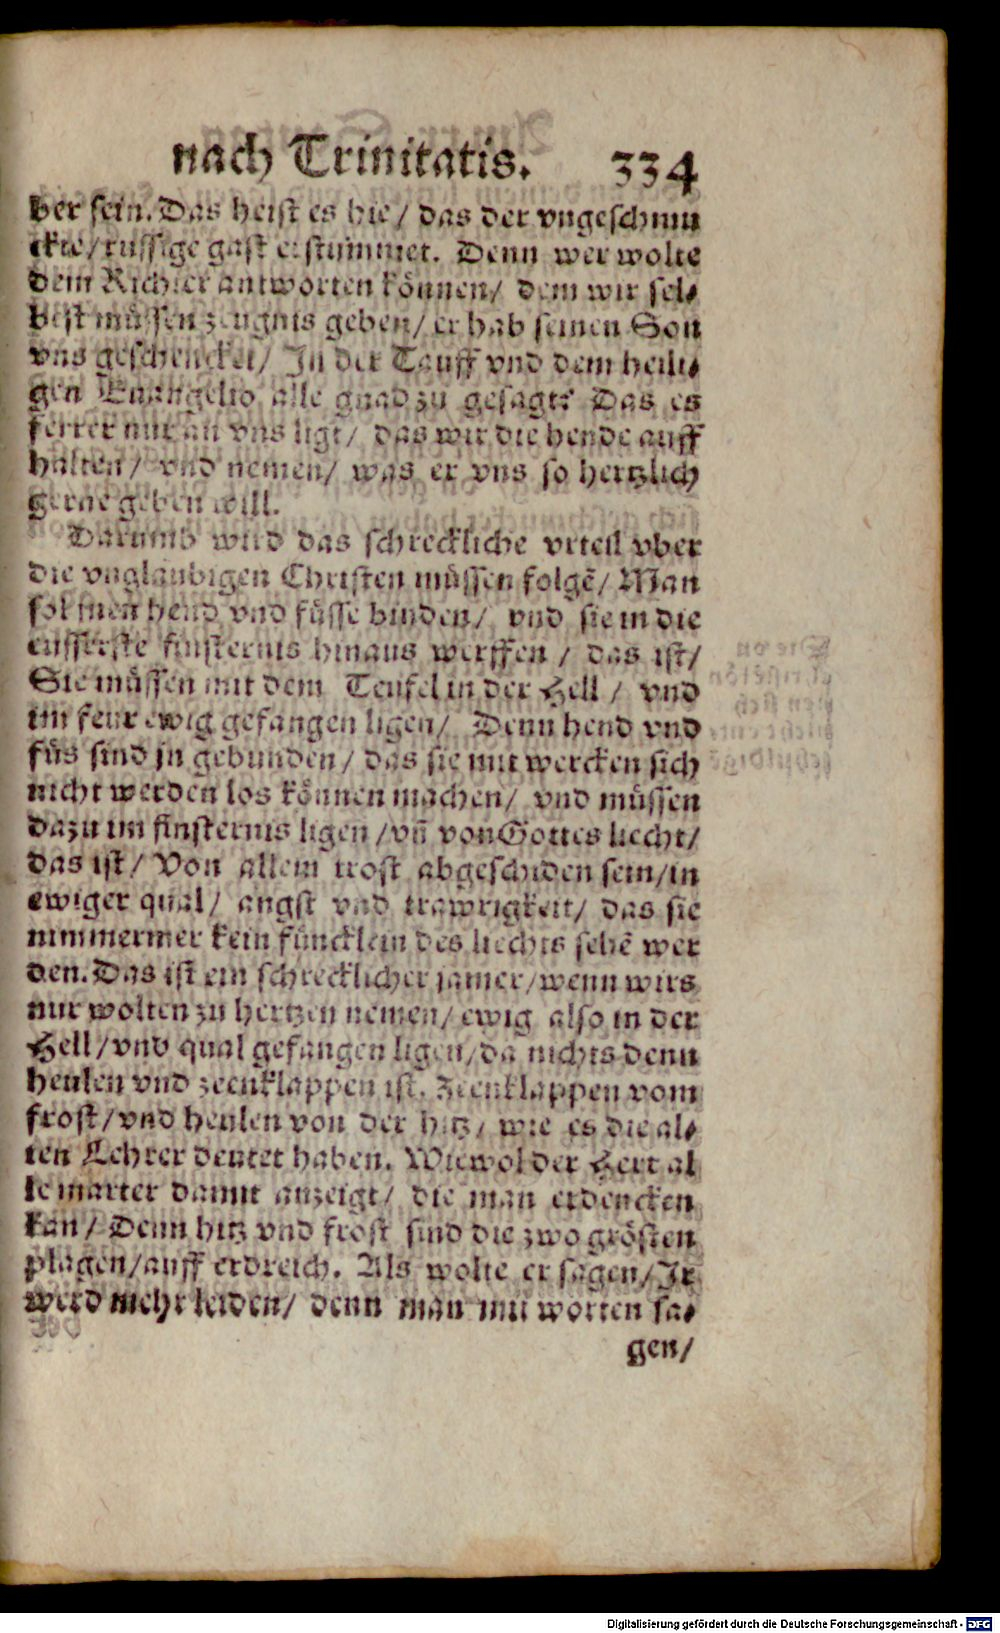 nach Trinitatis. 334
ber sein. Das heist es hie / das der vngeschmu
ckte / russige gast erstummet. Denn wer wolte
dem Richter antworten können / dem wir sel⸗
best müssen zeugnis geben / er hab seinen Son
vns geschencket / In der Tauff vnd dem heili⸗
gen Euangelio alle gnad zu gesagt? Das es
ferrer nur an vns ligt / das wir die hende auff
halten / vnd nemen / was er vns so hertzlich
gerne geben will.
Darumb wird das schreckliche vrteil vber
die vnglaubigen Christen müssen folgẽ / Man
sol jnen hend vnd füsse binden / vnd sie in die
eusserste finsternis hinaus werffen / das ist /
Sie müssen mit dem Teufel in der Hell / vnd
im feur ewig gefangen ligen / Denn hend vnd
füs sind jn gebunden / das sie mit wercken sich
nicht werden los können machen / vnd müssen
dazu im finsternis ligen / vñ von Gottes liecht /
das ist / Von allem trost abgeschiden sein / in
ewiger qual / angst vnd trawrigkeit / das sie
nimmermer kein füncklein des liechts sehẽ wer
den. Das ist ein schrecklicher jamer / wenn wirs
nur wolten zu hertzen nemen / ewig also in der
Hell / vnd qual gefangen ligen / da nichts denn
heulen vnd zeenklappen ist. Zeenklappen vom
frost / vnd heulen von der hitz / wie es die al⸗
ten Lehrer deutet haben. Wiewol der Herr al
le marter damit anzeigt / die man erdencken
kan / Denn hitz vnd frost sind die zwo grösten
plagen / auff erdreich. Als wolte er sagen / Ir
werd mehr leiden / denn man mit worten sa⸗
gen /
Digitalisierung gefördert durch die Deutsche Forschungsgemeinschaft - DFG